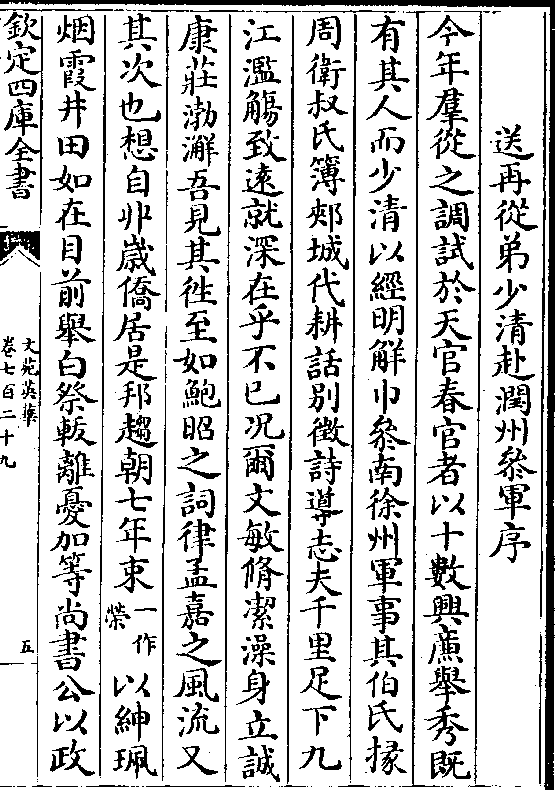 送再從弟少清赴潤州叅軍序
今年羣從之調試於天官春官者以十數興亷舉秀既
有其人而少清以經明解巾叅南徐州軍事其伯氏掾
周衛叔氏簿郟城代耕話別徵詩導志夫千里足下九
江濫觴致遠就深在乎不已况爾文敏脩潔澡身立誠
康莊渤澥吾見其徃至如鮑昭之詞律孟嘉之風流又
其次也想自丱嵗僑居是邦趨朝七年束一作榮以紳珮
烟霞井田如在目前舉白祭軷離憂加等尚書公以政
欽定四庫全書
文苑英華
卷七百二十九
五